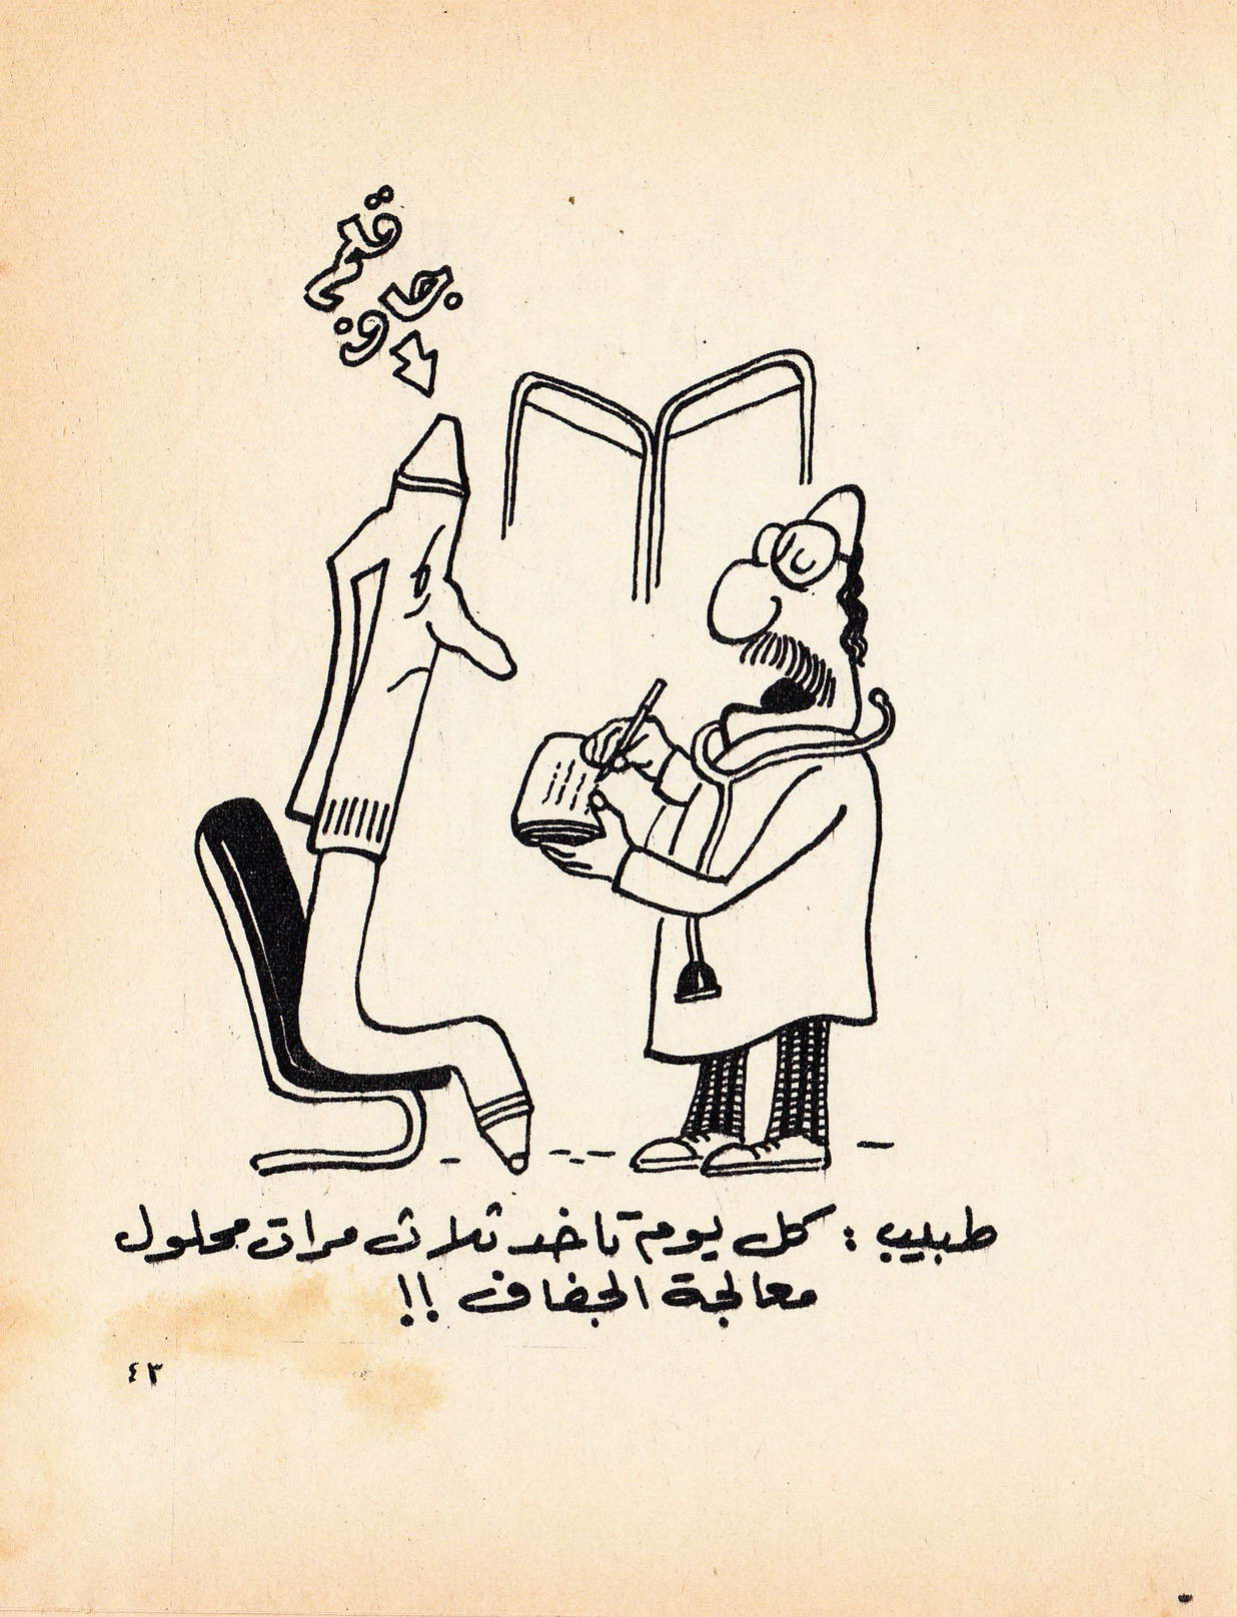 قلم
جاف
طبيب : كل يوم تاخد ثلاث مرات محلول
معالجة الجفاف !!
٤٣